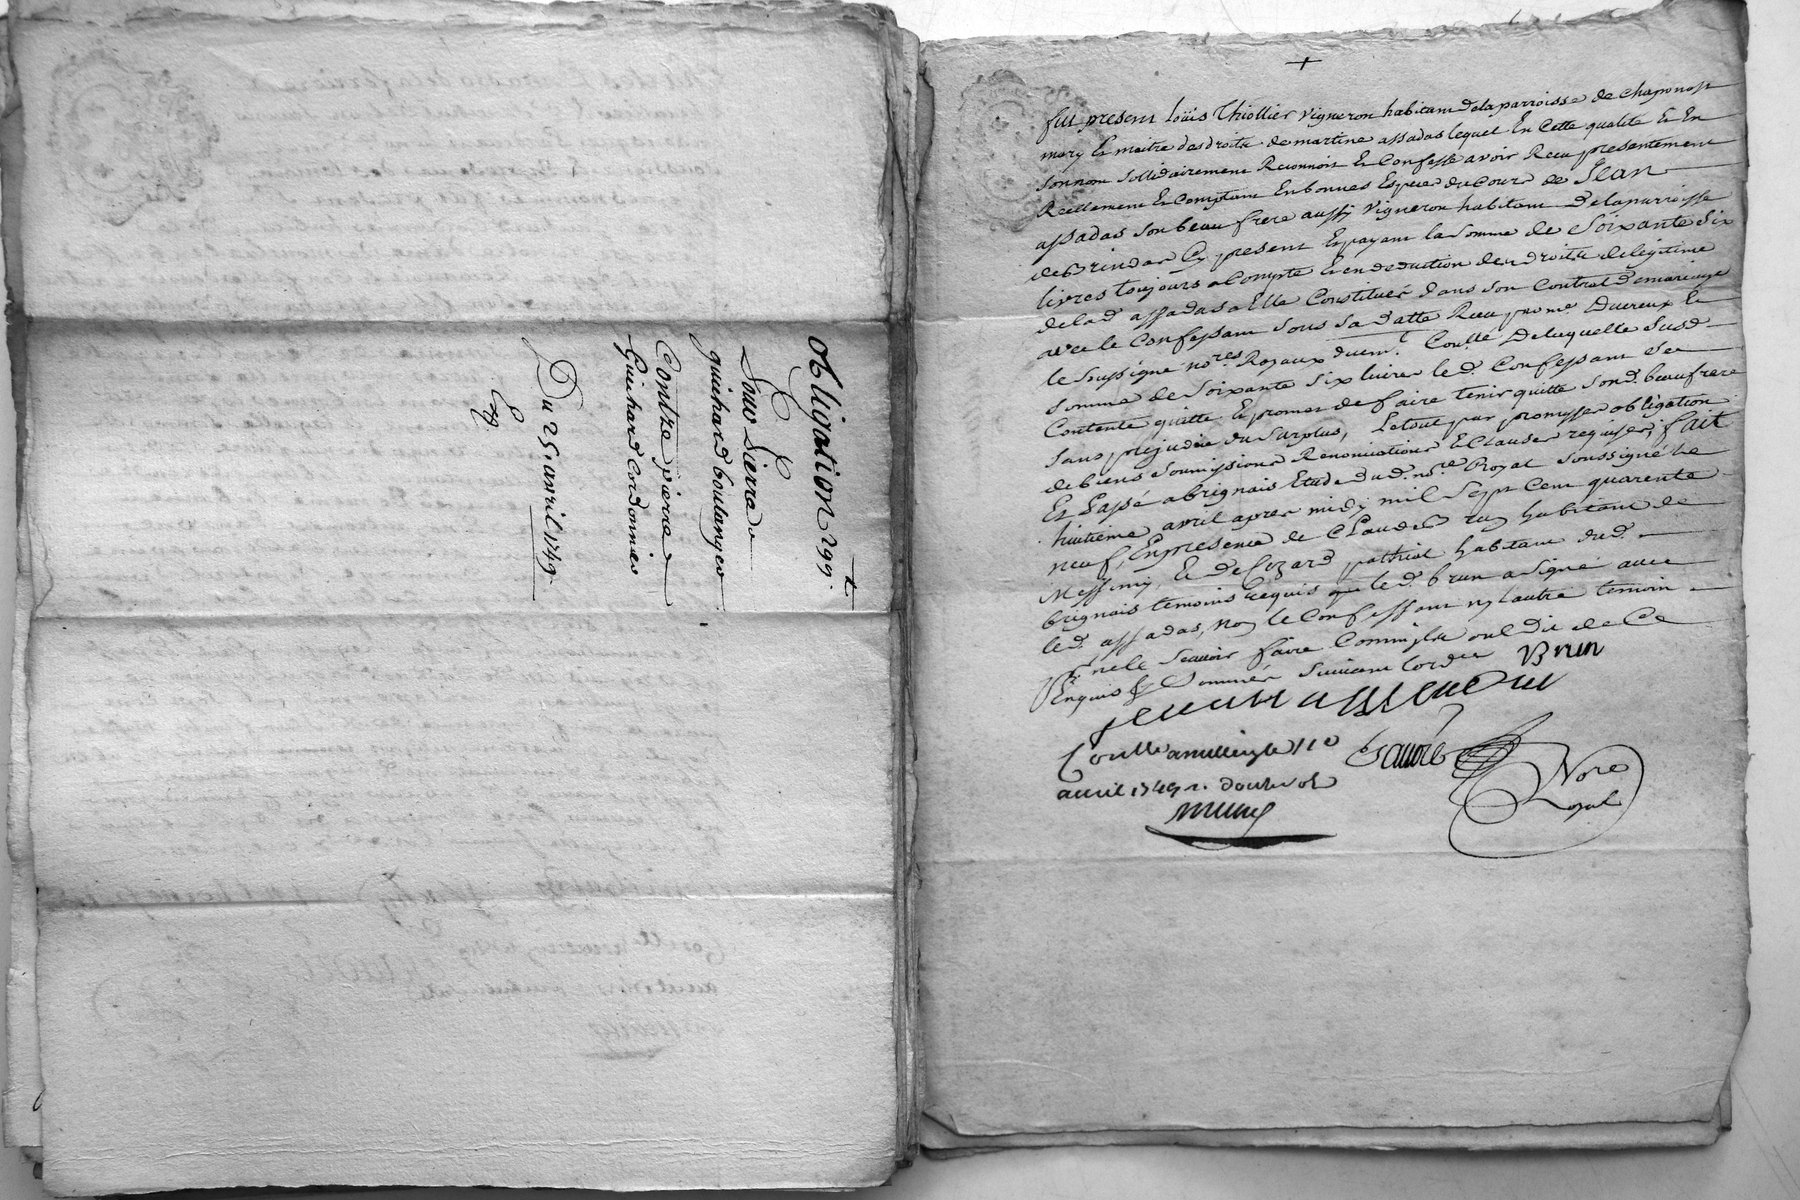 obligation 299
pour pierre
guichard boulanger
Contre pierre
Guichard Cordonnier
Du 25. avril 1749.
Exp
+
fut present Loüis Thiollier Vigneron habitant de la parroisse de chaponost
mary Et maitre des droits de martine assadas lequel En Cette qualité Et En
son nom sollidairement Reconnoit Et Confesse avoir Receu presentement
Reellement Et Comptant En bonnes Especes du Cours de Jean
assadas son beau frere aussy Vigneron habitant de la parroisse
de Brindas Cy present Et payant la somme de Soixante Six
livres toujours a Compte Et en deduction des droits de legitime
de lad. assadas a Elle Constitués dans son Contrat de mariage
avec le Confessant sous sa datte Receu par me Duereux Et
le soussigné nores Royaux duem.t Coll.é De laquelle susd.
somme de Soixante Six livres led. Confessant s'en
Contente quitte Et promet de faire tenir quitte sond. beaufrere
sans prejudice du Surplus, Le tout par promesses obligation
de biens soumissions Renonciations Et Clauses requises; fait
Et Passé a brignais Etude dud. nore Royal soussigné Le
huitieme avril apres midy mil Sept Cent quarente
neuf, En presence de Claude Brun habitant de
Messimy, Et de habitant dud.
brignais temoins Requis que led. brun a signé avec
led. assadas, non le Confessant ny l'autre temoin
pr ne le Scavoir faire Comme ils ont dit de Ce
Enquis Et Sommés Suivant l'ordce Brun
jean assada
Coullé a le 11e
avril 1749 r. douze sols
Nore
Royal